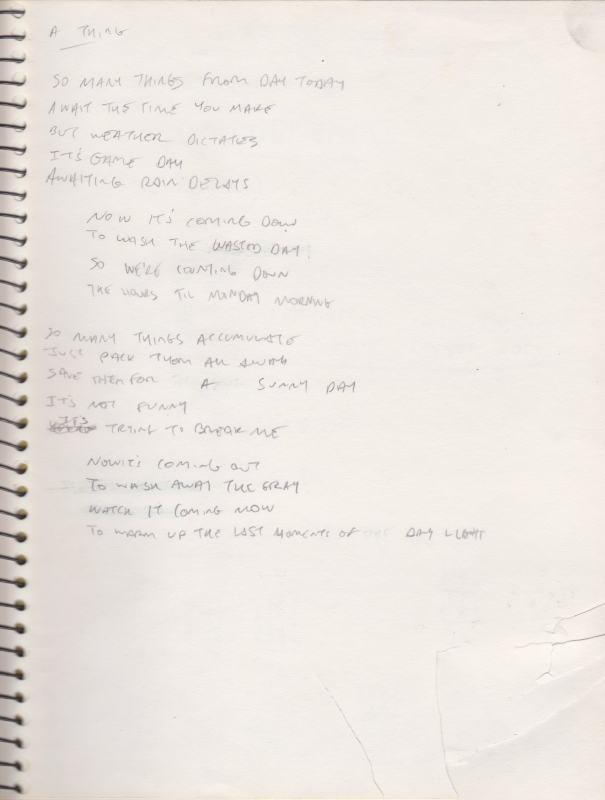 A THING
SO MANY THINGS FROM DAY TODAY
AWAIT THE TIME YOU MAKE
BUT WEATHER DICTATES
IT'S GAME DAY
AWAITING RAIN DELAYS
NOW IT'S COMING DOWN
TO WASH THE WASTED DAY
SO WE'RE COUNTING DOWN
THE HOURS TIL MONDAY MORNING
SO MANY THINGS ACCUMULATE
JUST PACK THEM ALL AWAY
SAVE THEM FOR A SUNNY DAY
IT'S NOT FUNNY
IT'S TRYING TO BREAK ME
NOW IT'S COMING OUT
TO WASH AWAY THE GRAY
WATCH IT COMING NOW
TO WARM UP THE LAST MOMENTS OF DAY LIGHT